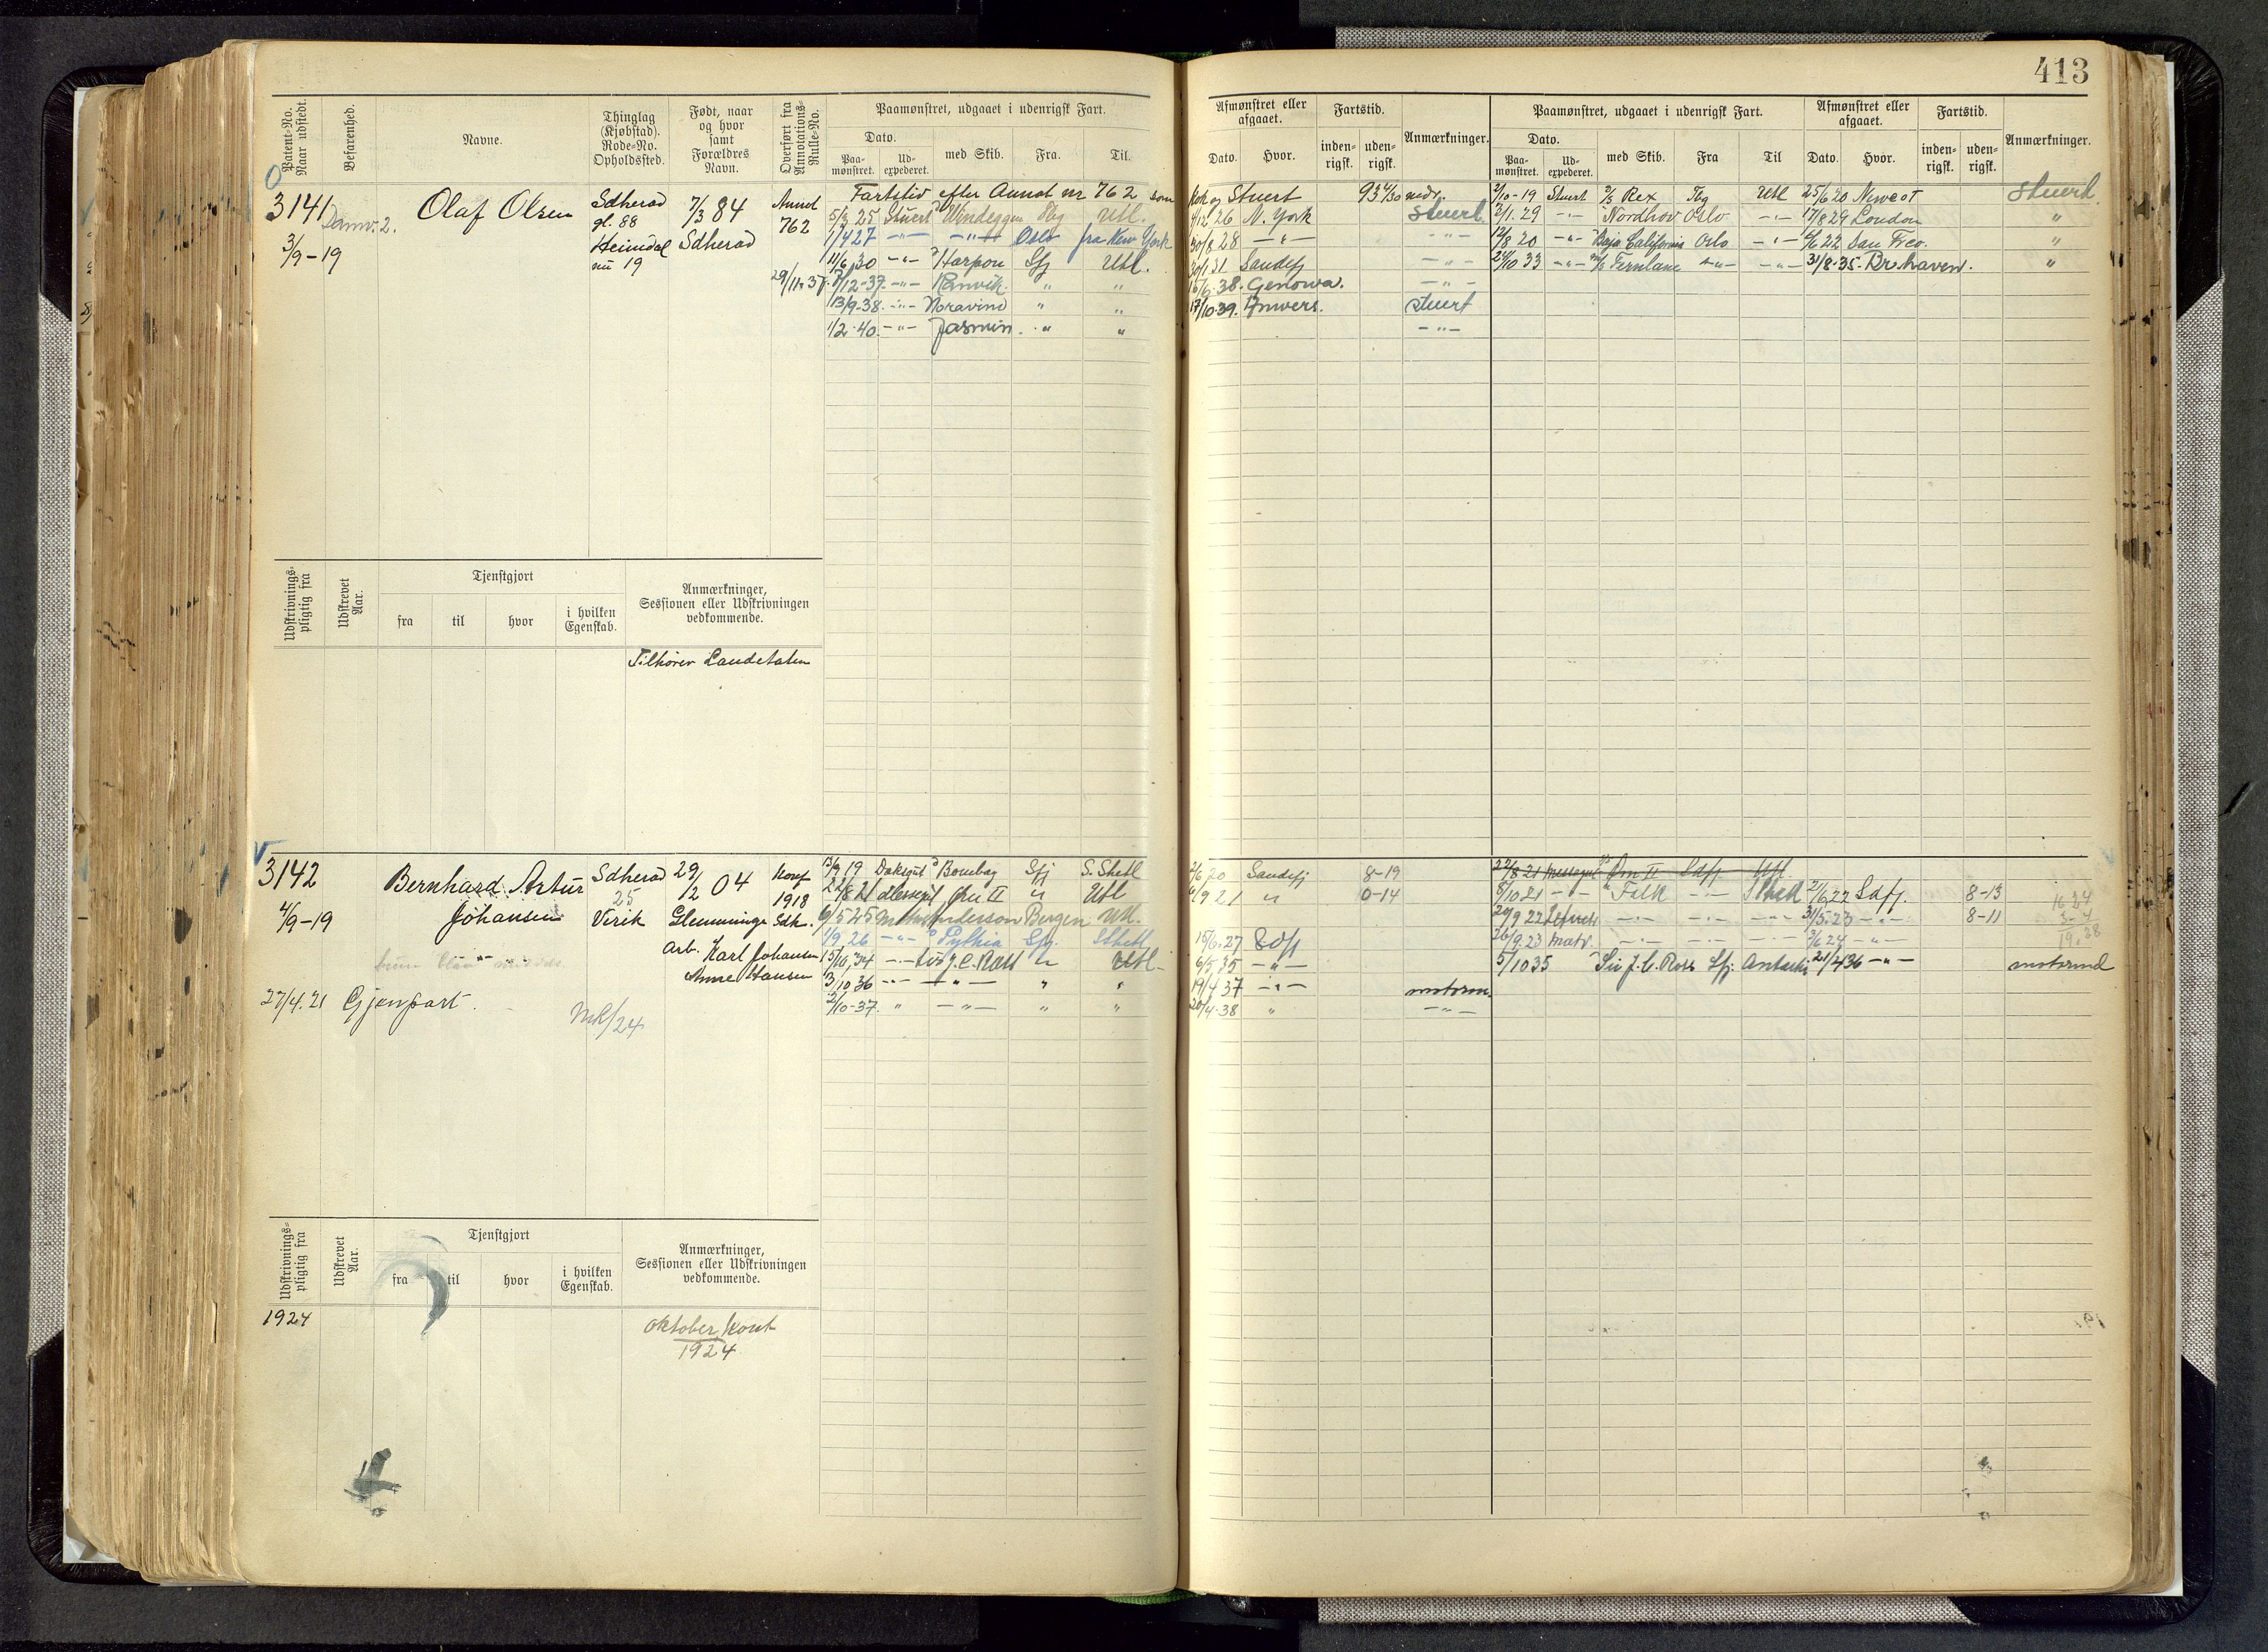 413
Patent-No. Naar udstedt.
Befarenhed.
Navne.
Thinglag (Kjøbstad). Rode-No. Opholdssted.
Født, naar og hvor samt Forældres Navn.
Overført fra Annotations-Rulle-No.
Paamønstret, udgaaet i udenrigsk Fart.
Dato.
Paa-mønstret.
Ud-expederet.
med Skib.
Fra.
Til.
Afmønstret eller afgaaet.
Dato.
Hvor.
Fartstid.
inden-rigsk.
uden-rigsk.
Anmærkninger.
Paamønstret, udgaaet i udenrigsk Fart.
Dato.
Paa-mønstret.
Ud-expederet.
med Skib.
Fra
Til
Afmønstret eller afgaaet.
Dato.
Hvor.
Fartstid.
inden-rigsk.
uden-rigsk.
Anmærkninger.
3141
3/9-19
Olaf Olsen
Sdherad
gl. 88
Heimdal
nu 19
7/3 84
Sdherad
Annot
762
29/11-37
Fartstid efter Annot nr 762 som Kok og Stuert
5/3 25 Stuert Vindeggen Tbg Utl. 4/12 26 N. York Stuert
1/4 27 -"- -"- Oslo fra New York 30/8 28 -"- -"-
11/6 30 -"- Harpon Sfj Utl. 30/1 31 Sandefj -"-
7/12-37 -"- Ranvik " " 15/6.38. Genowa. -"-
13/9-38. -"- Noravind " " 17/10.39. Anvers. Stuert
1/2-40. -"- Jasmin. " " -"-
2/10-19 Stuert Rex Tbg Utl 25/6 20 Stuert
2/1.29 -"- Nordhov Oslo -"- 17/8 29 London "
12/8 20 -"- Baja California Oslo -"- 4/6 22 San Fco. "
24/10 33 -"- M/S Fernlane -"- -"- 31/8-35. Br.haven. "
Udskrivnings-pligtig fra
Udskrevet Aar.
Tjenstgjort
fra
til
hvor
i hvilken Egenskab.
Anmærkninger, Sessionen eller Udskrivningen vedkommende.
Tilhører Landetaten
3142
4/9-19
Bernhard Artur
Johansen
Sdherad
25
Virik
29/2 04
Glemminge
Arb. Karl Johansen
Anne Hansen
Konf
1918
Sdh.
27/4.21 Gjenpart.
MK/24
13/9 19 Bouebog Sfj S. Shetl 2/6 20 Sandefj 8-19
22/8 21 Ørn II " Utl 6/9 21 " 0-14
6/5 25 Anderson Bergen Utl.
1/9 26 -"- Pythia Sfj. SShetl 15/6.27 Sdfj
15/10.34 -"- Sir J. C. Ross " Utl- 6/5.35 -"-
3/10 36 -"- -"- " " 19/4 37 -"- motorm.
2/10-37. " -"- " " 20/4.38 " -"-
22/8-21 Messegut Ørn II Sdfj Utl
8/10 21 -"- Falk -"- SShetl 2/6 22 Sdfj. 8-13
20/9 22 -"- -"- -"- 31/5-23 -"- 8-11
26/9.23 Matr. -"- -"- -"- 3/6 24 -"-
5/10 35 Sir J. C. Ross Sfj. Antarkt 21/4 36 -"- motormd
16-24
3-4
19.28
Udskrivnings-pligtig fra
Udskrevet Aar.
Tjenstgjort
fra
til
hvor
i hvilken Egenskab.
Anmærkninger, Sessionen eller Udskrivningen vedkommende.
1924
oktober kont
1924